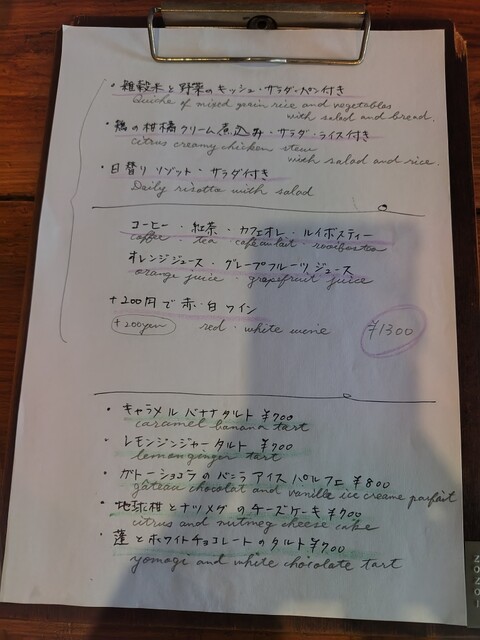 ・雑穀米と野菜のキッシュ・サラダ・パン付き
Quiche of mixed grain rice and vegetables
with salad and bread.
・鶏の柑橘クリーム煮込み・サラダ・ライス付き
citrus creamy chicken stew
with salad and rice.
・日替り リゾット・サラダ付き
Daily risotto with salad
コーヒー・紅茶・カフェオレ・ルイボスティー
coffee・tea・café au lait・rooibos tea
オレンジジュース・グレープフルーツジュース
orange juice・grapefruit juice
+200円で 赤・白 ワイン
+200yen red・white wine ¥1300
・キャラメル バナナタルト ¥700
caramel banana tart
・レモンジンジャータルト ¥700
lemon ginger tart
・ガトーショコラのバニラアイスパルフェ ¥800
gâteau chocolat and vanille ice creame parfait
・地球柑とナツメグのチーズケーキ ¥700
citrus and nutmeg cheese cake
・蓬とホワイトチョコレートのタルト ¥700
yomogi and white chocolate tart